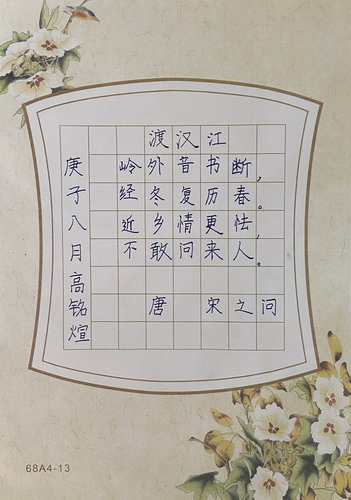 渡汉江
岭外音书断，
经冬复历春。
近乡情更怯，
不敢问来人。
唐 宋之问
庚子八月高铭煊
68A4-13